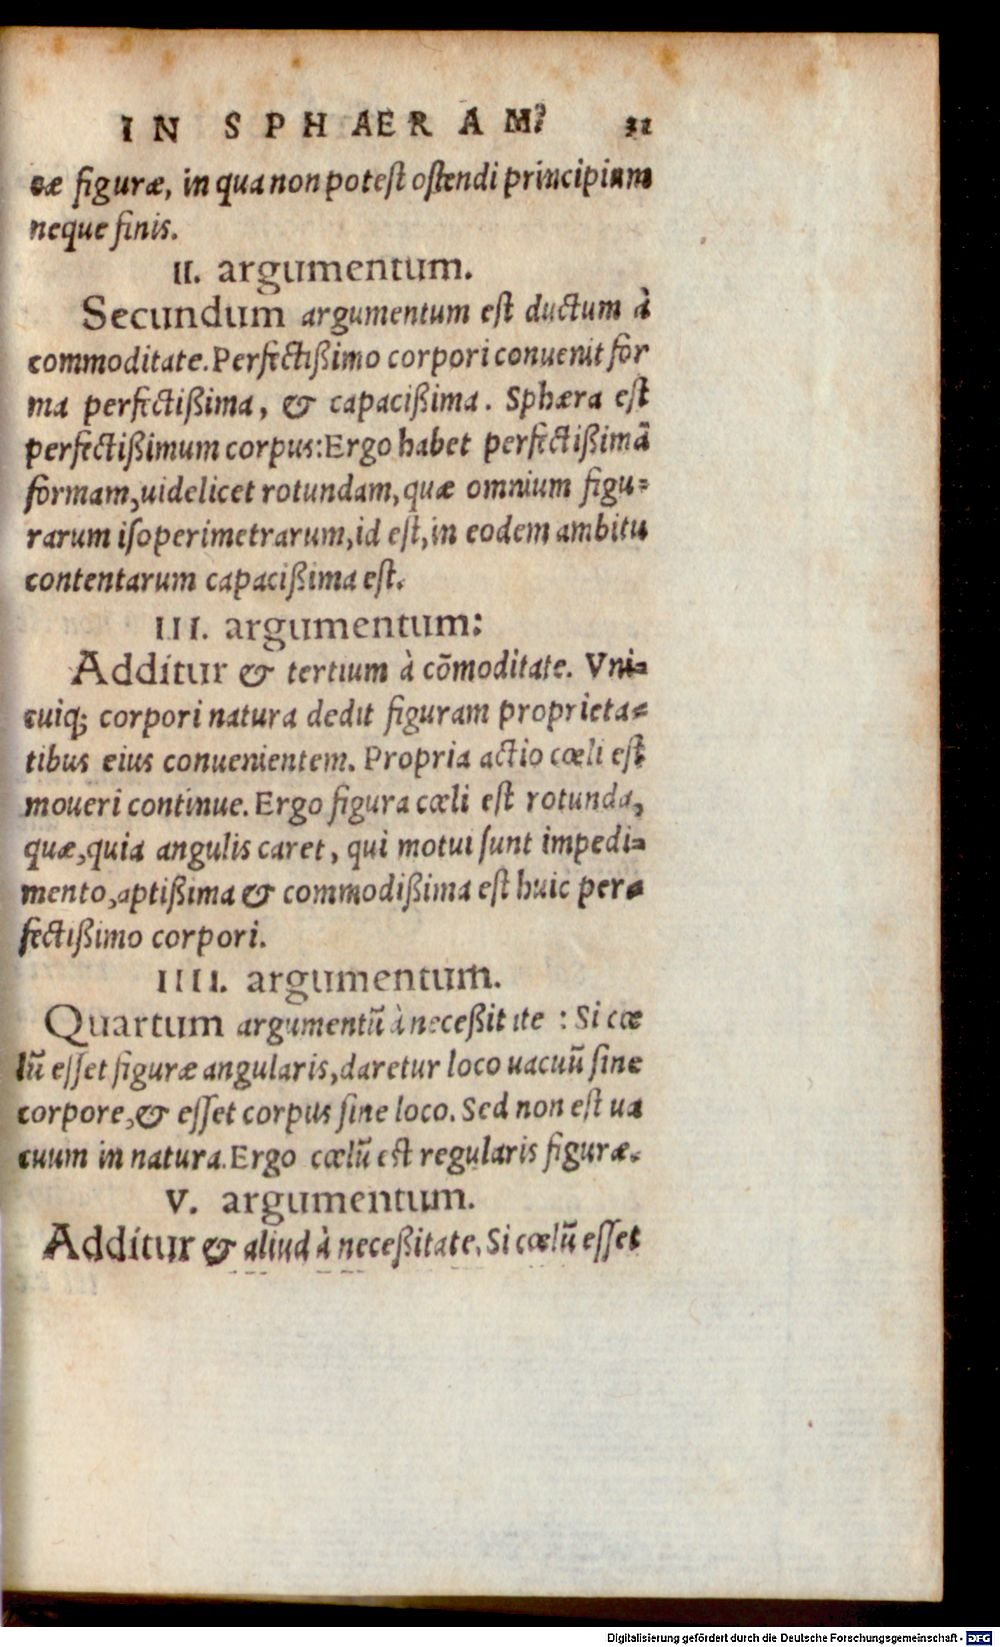 IN SPHAERAM? 31
cæ figuræ, in qua non potest ostendi principium
neque finis.
II. argumentum.
Secundum argumentum est ductum à
commoditate. Perfectißimo corpori conuenit for
ma perfectißima, & capacißima. Sphæra est
perfectißimum corpus: Ergo habet perfectißimã
formam, uidelicet rotundam, quæ omnium figu-
rarum isoperimetrarum, id est, in eodem ambitu
contentarum capacißima est.
III. argumentum:
Additur & tertium à cõmoditate. Vni-
cuiq; corpori natura dedit figuram proprieta-
tibus eius conuenientem. Propria actio cœli est
moueri continue. Ergo figura cœli est rotunda,
quæ, quia angulis caret, qui motui sunt impedi-
mento, aptißima & commodißima est huic per-
fectißimo corpori.
IIII. argumentum.
Quartum argumentũ à neceßitate : Si cœ
lũ esset figuræ angularis, daretur loco uacuũ sine
corpore, & esset corpus sine loco. Sed non est ua
cuum in natura. Ergo cœlũ est regularis figuræ.
V. argumentum.
Additur & aliud à neceßitate. Si cœlũ esset
Digitalisierung gefördert durch die Deutsche Forschungsgemeinschaft - DFG